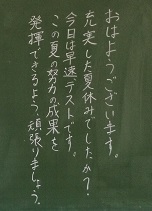 おはようございます。
充実した夏休みでしたか？
今日は早速、テストです。
この夏の努力の成果を
発揮できるよう、頑張りましょう。